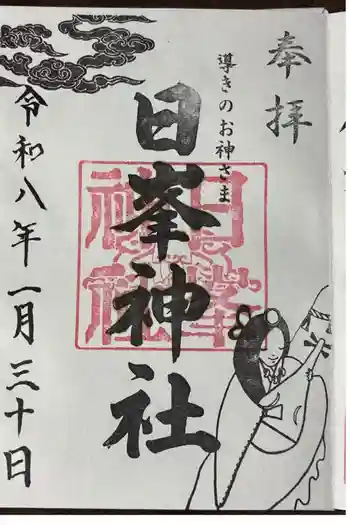 奉拝
導きのお神さま
日峯神社
日峯神社
令和八年一月三十日